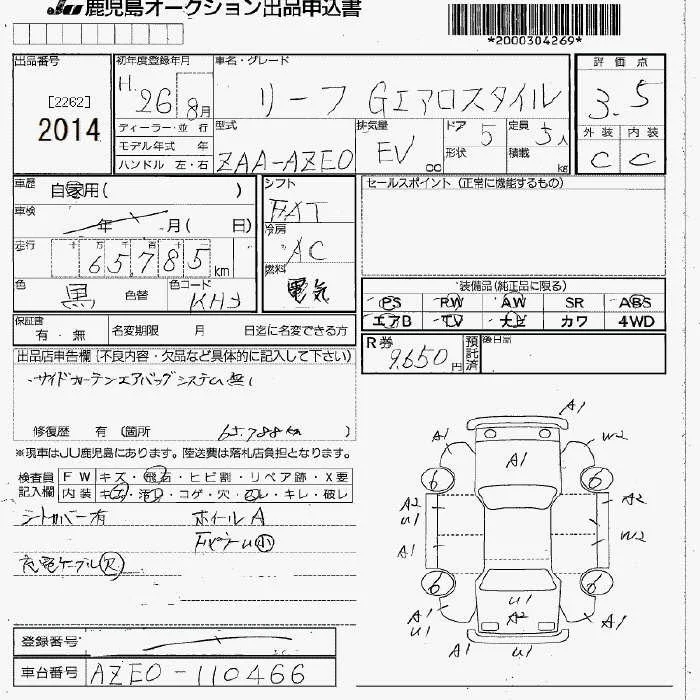 JU 鹿児島オークション出品申込書
*2000304269*
出品番号
[2262]
2014
初年度登録年月
H. 26 8月
ディーラー・並行
モデル年式 年
ハンドル 左・右
車名・グレード
リーフ Gエアロスタイル
型式
ZAA-AZE0
排気量
EV cc
ドア 5
形状
定員 5人
積載 kg
評価点
3.5
外装 内装
C C
車歴 自家用( )
車検 年 月( 日)
走行 十 万 千 百 十
65,785 km
色 黒 色替 色コード KH3
シフト
FAT
冷房
AC
燃料
電気
セールスポイント (正常に機能するもの)
装備品(純正品に限る)
PS PW AW SR ABS
エアB TV ナビ カワ 4WD
保証書 有・無 名変期限 月 日迄に名変できる方
R券 9,650円 預託済 後日高
出品店申告欄 [不良内容・欠品など具体的に記入して下さい)
サイドカーテンエアバッグシステム無し
修復歴 有 (箇所 65,788km )
※現車はJU鹿児島にあります。陸送費は落札店負担となります。
検査員記入欄
FW キズ・飛石・ヒビ割・リペア跡・X要
内装 キズ・汚レ・コゲ・穴・スレ・キレ・破レ
シートカバー有 ホイールA
充電ケーブル(R) (小)
登録番号
車台番号 AZE0-110466
A1
A1 A1 W2
6 6
A2 A2
U1
W2
A1
6 6
U1
A1 A2 A1
U1
A1 U1